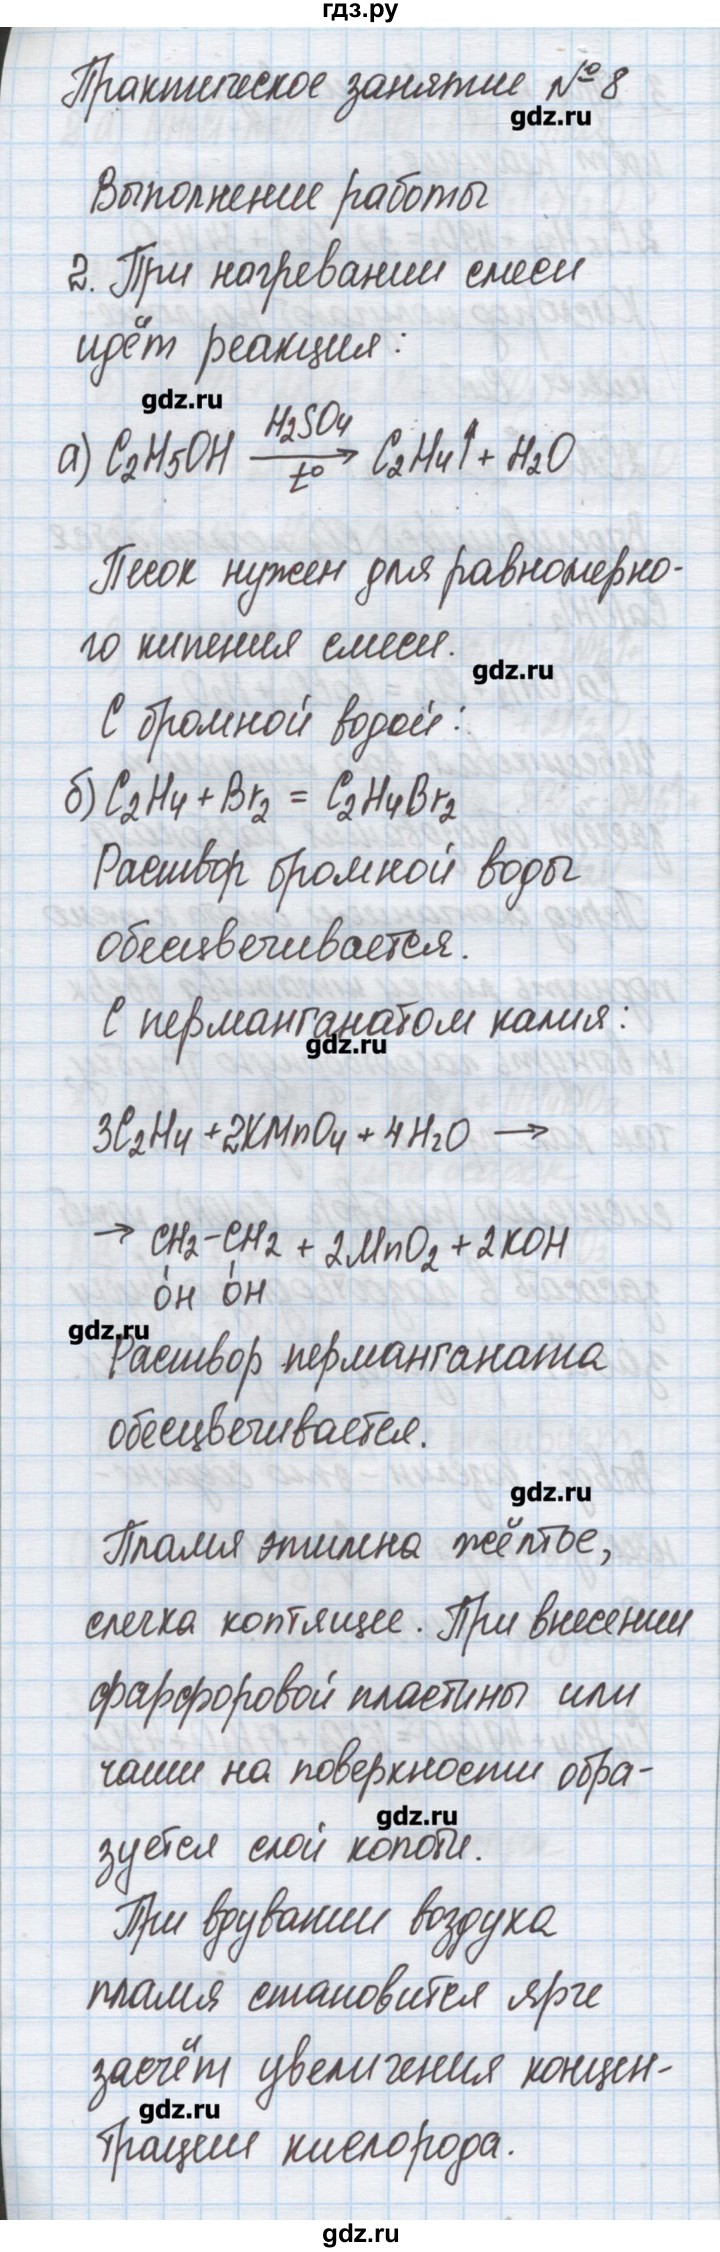 гдз.ру
Практическое занятие № 8
gdz.ru
Выполнение работы
2. При нагревании смеси
идёт реакция:
gdz.ru
а) C₂H₅OH —H₂SO₄, t°→ C₂H₄↑ + H₂O
Песок нужен для равномерно-
го кипения смеси.
gdz.ru
С бромной водой:
б) C₂H₄ + Br₂ = C₂H₄Br₂
Раствор бромной воды
обесцвечивается.
С перманганатом калия:
gdz.ru
3C₂H₄ + 2KMnO₄ + 4H₂O →
→ CH₂-CH₂ + 2MnO₂ + 2KOH
OH OH
gdz.ru
Раствор перманганата
обесцвечивается.
gdz.ru
Пламя этилена жёлтое,
слегка коптящее. При внесении
фарфоровой пластины или
чаши на поверхности обра-
gdz.ru
зуется слой копоти.
При вдувании воздуха
пламя становится ярче
засчёт увеличения концен-
gdz.ru
трации кислорода.
gdz.ru